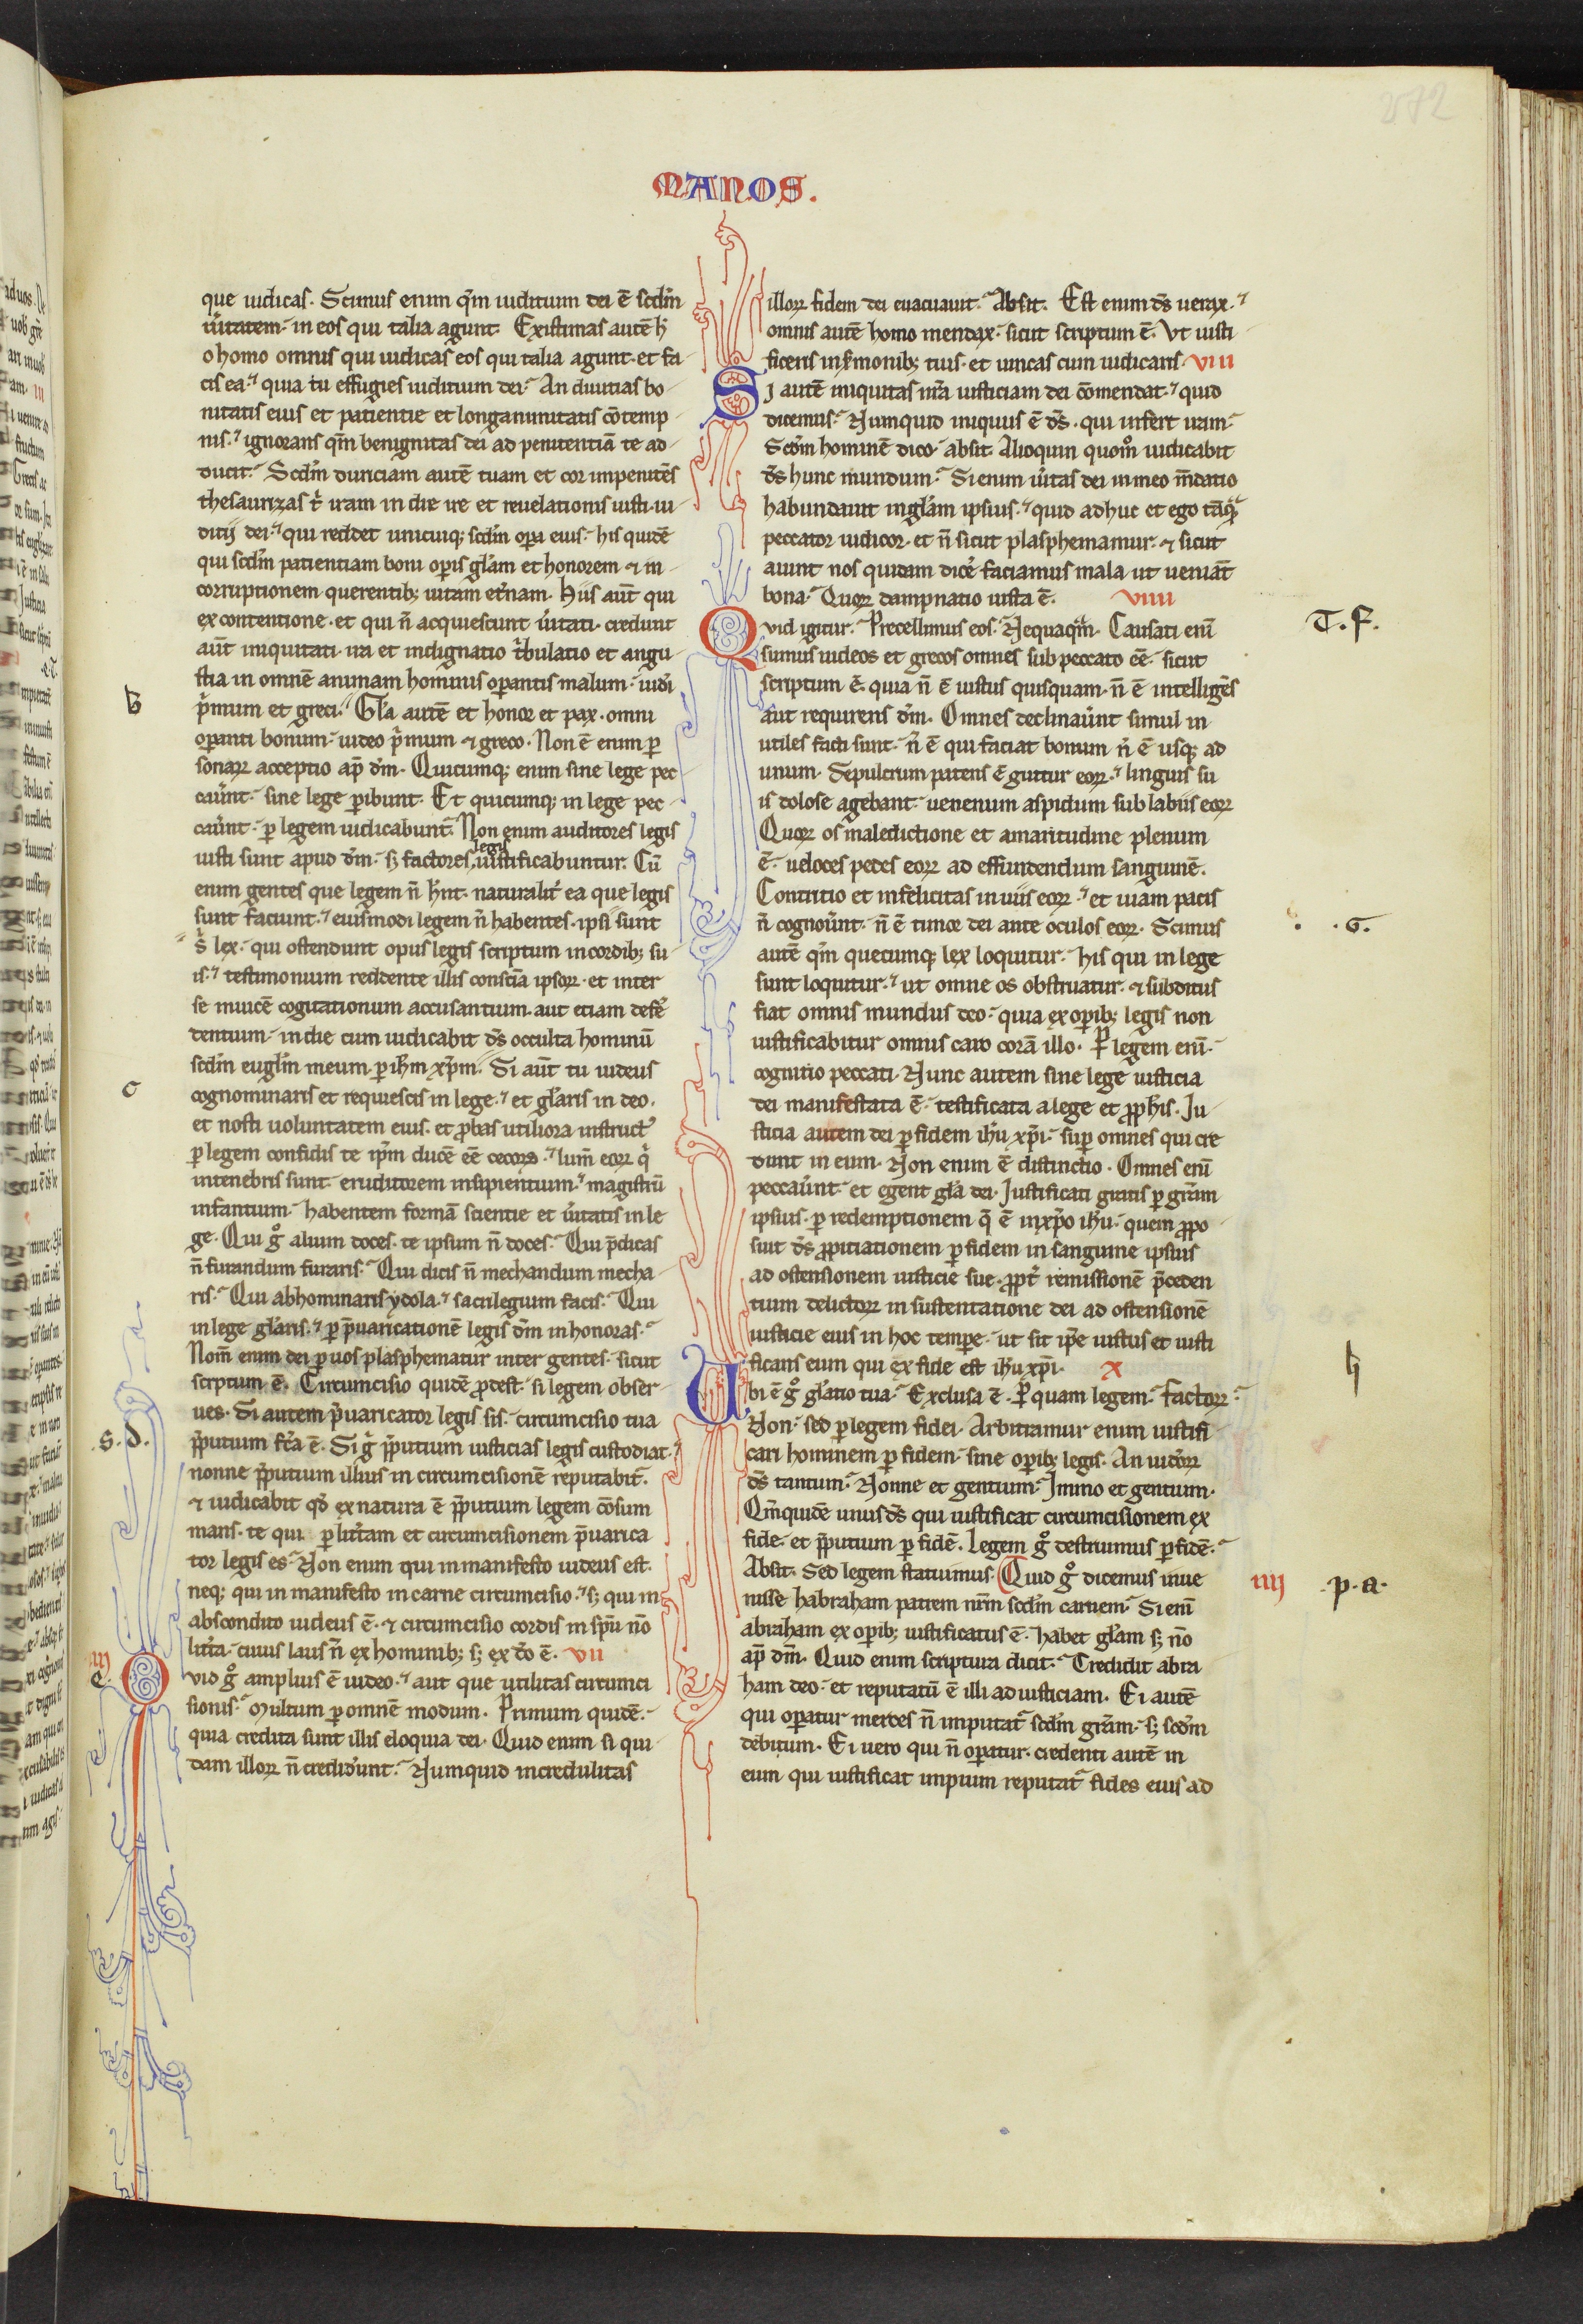 272
MANOS.
que iudicas. Scimus enim qm̄ iudicium dei ē scdm̄
ūitatem. in eos qui talia agunt. Existimas autē h̄
o homo omnis qui iudicas eos qui talia agunt. et fa
cis ea. quia tu effugies iudicium dei. An diuitias bo
nitatis eius et patientie et longanimitatis cōtemp
nis. ignorans qm̄ benignitas dei ad penitentiā te ad
ducit. Scdm̄ duriciam autē tuam et cor impenitēs
thesaurizas t iram in die ire et reuelationis iusti iu
dicij dei. qui reddet unicuiq; scdm̄ opa eius. his quidē
qui scdm̄ patientiam boni opis glam et honorem ⁊ in
corruptionem querentib; uitam et̄nam. Hiis aut̄ qui
ex contentione. et qui n̄ acquiescunt ūitati. credunt
aut̄ iniquitati. ira et indignatio tbulatio et angu
stia in omnē animam hominis opantis malum. iudi
b
pmum et greci. Gla autē et honor et pax. omni
opanti bonum. iudeo pmum ⁊ greco. Non ē enim p
sonarꝝ acceptio ap̄ dm̄. Quicumq; enim sine lege pec
caūnt. sine lege pibunt. Et quicumq; in lege pec
caūnt. p legem iudicabunt̄. Non enim auditores legis
iusti sunt apud dm̄. s; factores legis iustificabuntur. Cū
enim gentes que legem n̄ hn̄t. naturalit̄ ea que legis
sunt faciunt. eiusmodi legem n̄ habentes. ipsi sunt
s̄ lex. qui ostendunt opus legis scriptum in cordib; su
is. testimonium reddente illis consciā ipsorꝝ. et inter
se inuicē cogitationum accusantium. aut etiam defē
dentium. in die cum iudicabit ds̄ occulta hominū
scdm̄ euglm̄ meum p ihm̄ xpm̄. Si aut̄ tu iudeus
c
cognominaris et requiescis in lege. et glaris in deo.
et nosti uoluntatem eius. et pbas utiliora instruct
p legem confidis te ipm̄ ducē eē cecorꝝ. lum̄ eorꝝ q
in tenebris sunt. eruditorem insipientium. magistrū
infantium. habentem formā scientie et ūitatis in le
ge. Qui g alium doces. te ipsum n̄ doces. Qui pdicas
n̄ furandum furaris. Qui dicis n̄ mechandum mecha
ris. Qui abhominaris ydola. sacrilegium facis. Qui
in lege glaris. p puaricationē legis dm̄ in honoras.
Nom̄ enim dei p uos plasphematur inter gentes. sicut
scrptum ē. Circumcisio quidē pdest. si legem obser
ues. Si autem puaricator legis sis. circumcisio tua
s. d.
pputium fcā ē. Si g pputium iusticias legis custodiat.
nonne pputium illius in circumcisionē reputabit̄.
⁊ iudicabit qd ex natura ē pputium legem cōsum
mans. te qui p lit̄am et circumcisionem puarica
tor legis es. Non enim qui in manifesto iudeus est.
neq; qui in manifesto in carne circumcisio. s; qui in
abscondito iudeus ē. ⁊ circumcisio cordis in spū nō
lit̄a. cuius laus n̄ ex hominib; s; ex do ē. VII
III
e.
Quid g amplius ē iudeo. aut que utilitas circumci
sionis. Multum p omnē modum. Primum quidē.
quia credita sunt illis eloquia dei. Quid enim si qui
dam illorꝝ n̄ crediderunt. Numquid incredulitas
illorꝝ fidem dei euacuauit. Absit. Est enim ds̄ uerax.
omnis autē homo mendax. sicut scriptum ē. Vt iusti
ficeris in smonib; tuis. et uincas cum iudicaris. VIII
Si autē iniquitas nra iusticiam dei cōmendat. quid
dicemus. Numquid iniquus ē ds̄. qui infert iram.
Scdm̄ hominē dico. absit. Alioquin quom iudicabit
ds̄ hunc mundum. Si enim ūitas dei in meo mdatio
habundauit in glam ipsius. quid adhuc et ego tāq̄
peccator iudicor. et n̄ sicut plasphemamur. ⁊ sicut
aiunt nos quidam dice faciamus mala ut ueniāt
bona. Quorꝝ dampnatio iusta ē. VIIII
Quid igitur. Precellimus eos. Nequaqm̄. Causati enī
T. f.
sumus iudeos et grecos omnes sub peccato eē. sicut
scriptum ē. quia n̄ ē iustus quisquam. n̄ ē intelligēs
aut requirens dm̄. Omnes declinaūnt simul in
utiles facti sunt. n̄ ē qui faciat bonum n̄ ē usq; ad
unum. Sepulcrum patens ē guttur eorꝝ. linguis su
is dolose agebant. uenenum aspidum sub labiis eorꝝ
Quorꝝ os maledictione et amaritudine plenum
ē. ueloces pedes eorꝝ ad effundendum sanguinē.
Contritio et infelicitas in uiis eorꝝ. et uiam pacis
n̄ cognoūnt. n̄ ē timor dei ante oculos eorꝝ. Scimus
. G.
autē qm̄ quecumq; lex loquitur. his qui in lege
sunt loquitur. ut omne os obstruatur. ⁊ subditus
fiat omnis mundus deo. quia ex opib; legis non
iustificabitur omnis caro corā illo. P legem enī.
cognitio peccati. Nunc autem sine lege iusticia
dei manifestata ē. testificata a lege et pphis. Ju
sticia autem dei p fidem ihu xpi. sup omnes qui cre
dunt in eum. Non enim ē distinctio. Omnes enī
peccaūnt. et egent gla dei. Justificati gratis p gram
ipsius. p redemptionem q ē in xpo ihu. quem ppo
suit ds̄ ppitiationem p fidem in sanguine ipsius
ad ostensionem iusticie sue. ppt remissionē pceden
tium delictorꝝ in sustentatione dei ad ostensionē
iusticie eius in hoc tempe. ut sit ipe iustus et iusti
ficans eum qui ex fide est ihu xpi. X
h
Ubi ē g glatio tua. Exclusa ē. P quam legem. factorꝝ.
Non. sed p legem fidei. Arbitramur enim iustifi
cari hominem p fidem. sine opib; legis. An iudeorꝝ
ds̄ tantum. Nonne et gentium. Immo et gentium.
Qm̄ quidē unus ds̄ qui iustificat circumcisionem ex
fide. et pputium p fidē. Legem g destruimus p fidē.
Absit. Sed legem statuimus. Quid g dicemus inue
IIII
p. a.
nisse habraham patrem nrm̄ scdm̄ carnem. Si enī
abraham ex opib; iustificatus ē. habet glam s; nō
ap̄ dm̄. Quid enim scriptura dicit. Credidit abra
ham deo. et reputatū ē illi ad iusticiam. Ei autē
qui opatur merces n̄ imputat̄ scdm̄ gram. s; scdm̄
debitum. Ei uero qui n̄ opatur. credenti autē in
eum qui iustificat impium reputat̄ fides eius ad